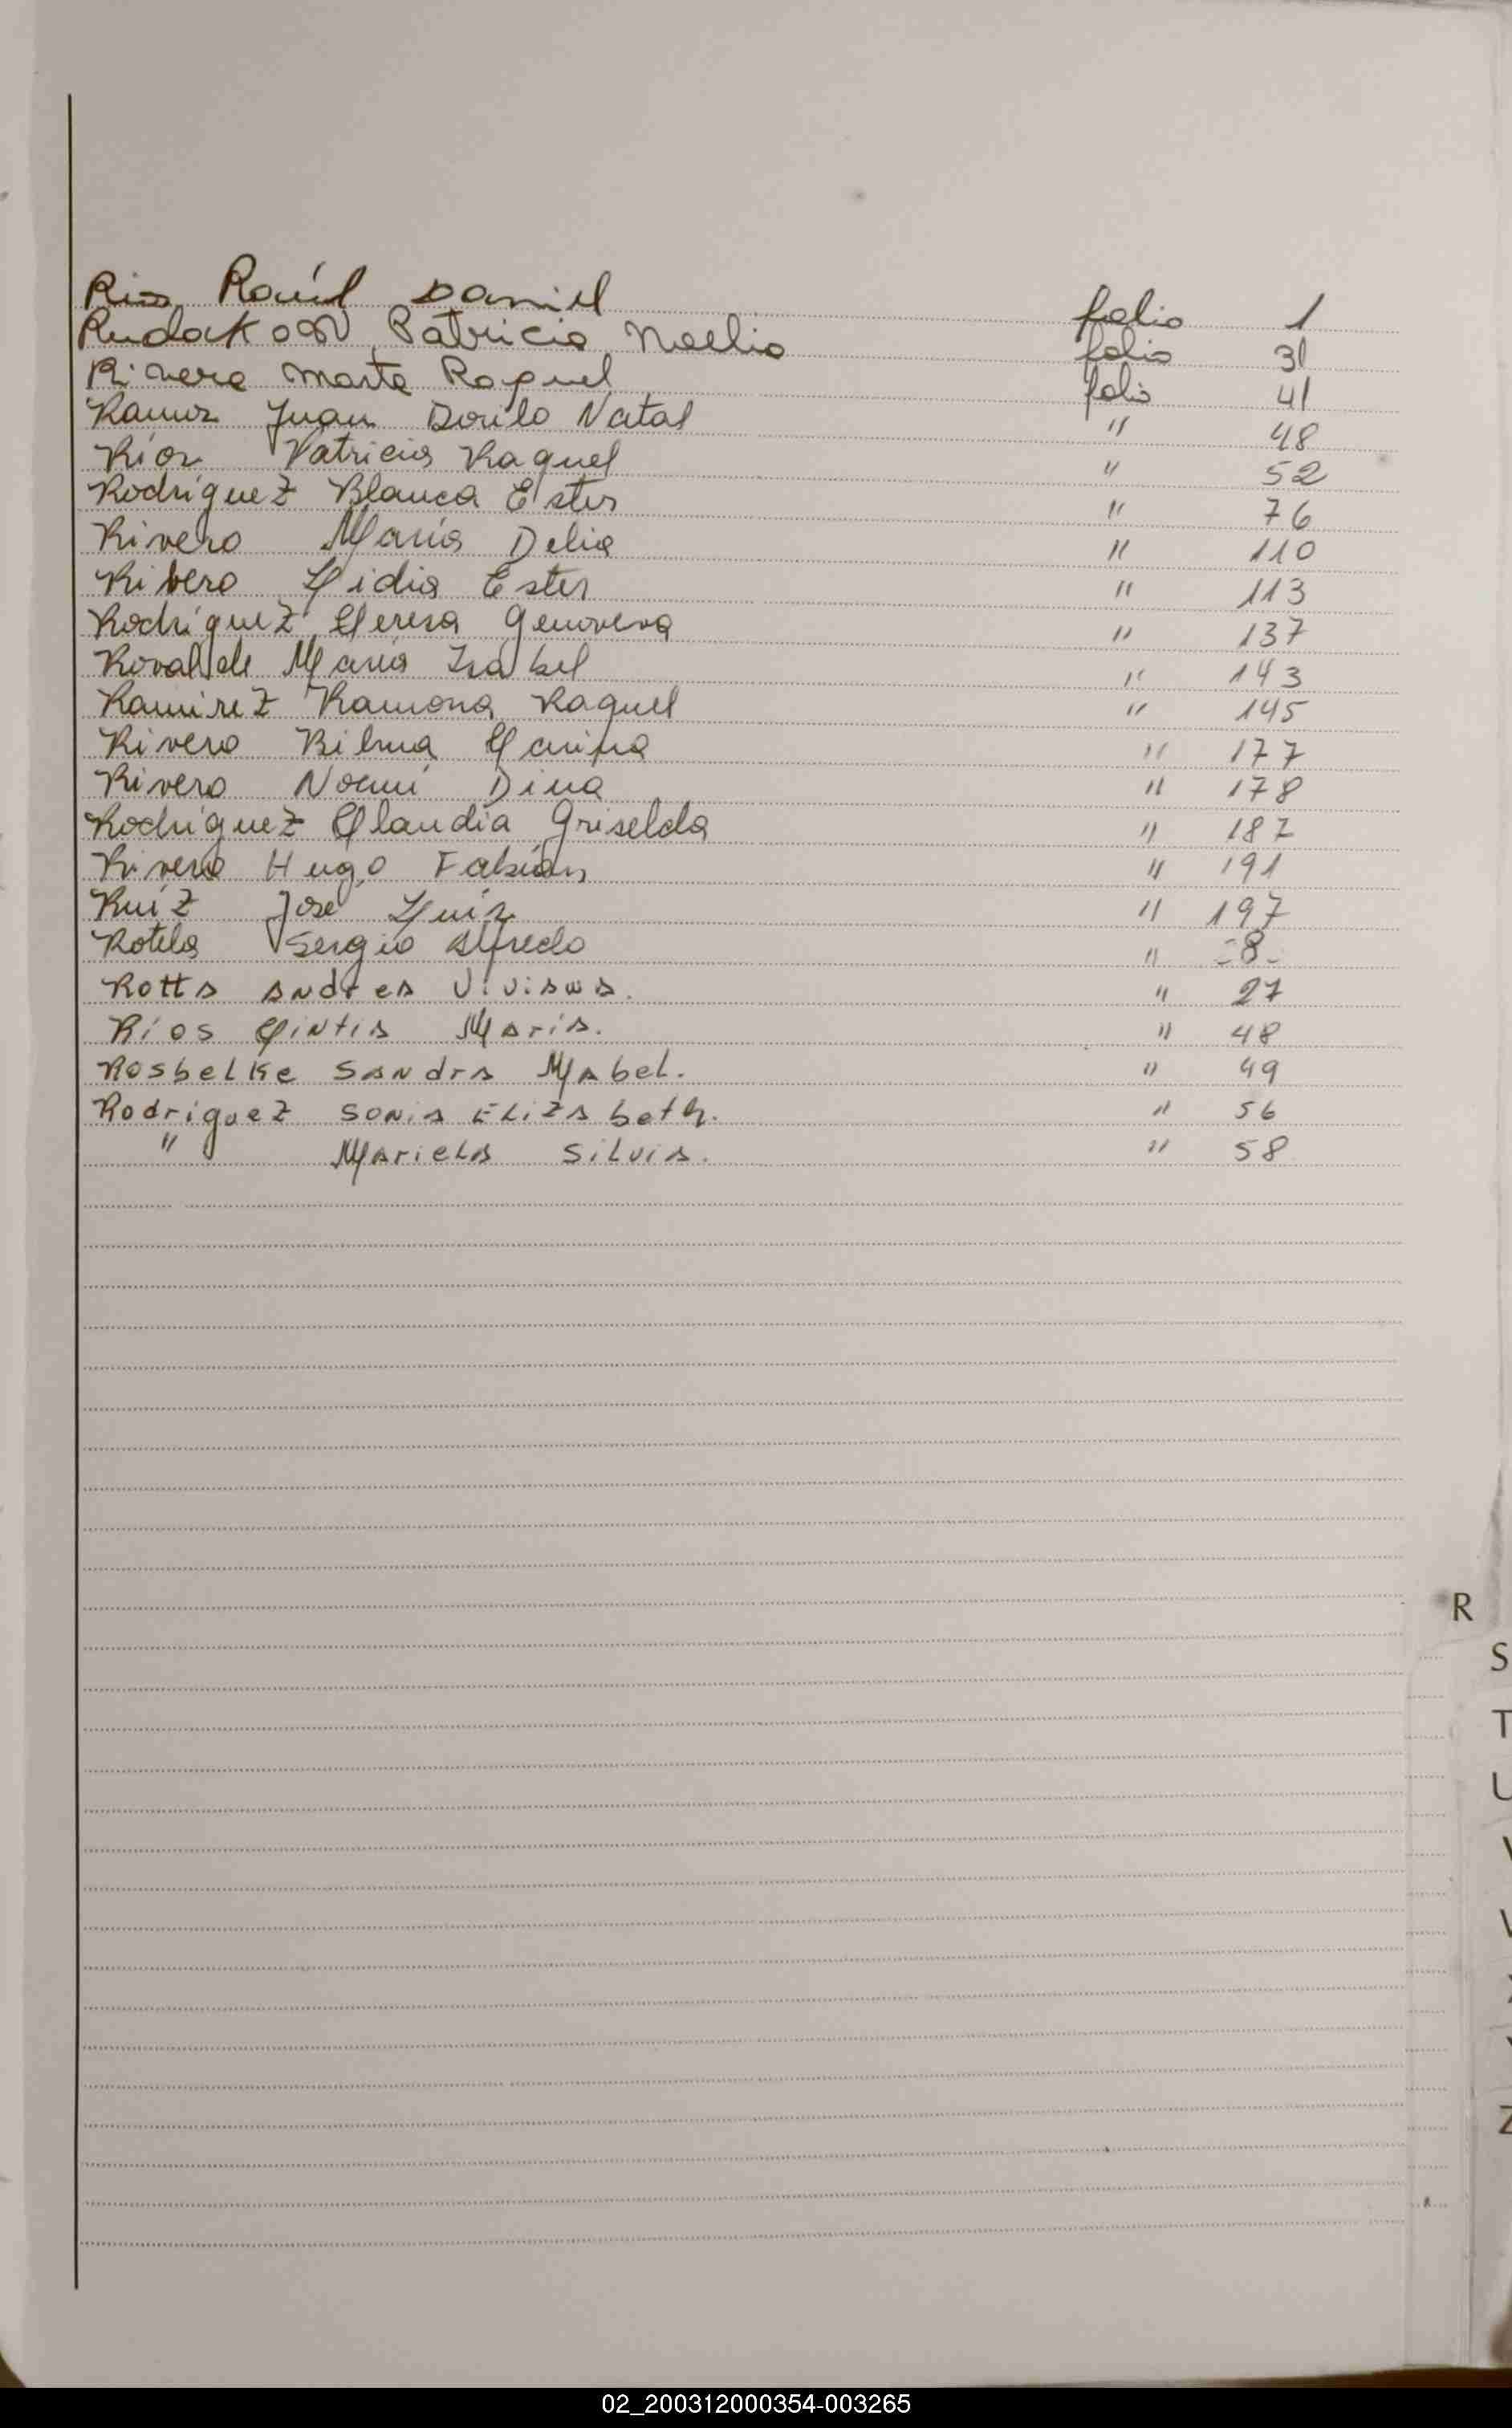 Rios, Raúl Daniel folio 1
Rudakoff, Patricia Noelia folio 31
Rivera Marta Raquel folio 41
Ramos Juan Dorilo Natal " 48
Ríos Patricia Raquel " 52
Rodríguez Blanca Ester " 76
Rivero María Delia " 110
Ribero Lidia Ester " 113
Rodríguez Teresa Genoveva " 137
María Isabel " 143
Ramírez Ramona Raquel " 145
Rivero Bilma " 177
Rivero Noemí Dina " 178
Rodríguez Claudia Griselda " 187
Rivero Hugo Fabián " 191
Ruíz José Luís " 197
Rotela Sergio Alfredo " =8=
Rotta Andrea Viviana. " 27
Ríos Cintia María. " 48
Rosbelke Sandra Mabel. " 49
Rodríguez Sonia Elizabeth. " 56
" Mariela Silvia. " 58
R
S
T
U
V
Z
02_200312000354-003265